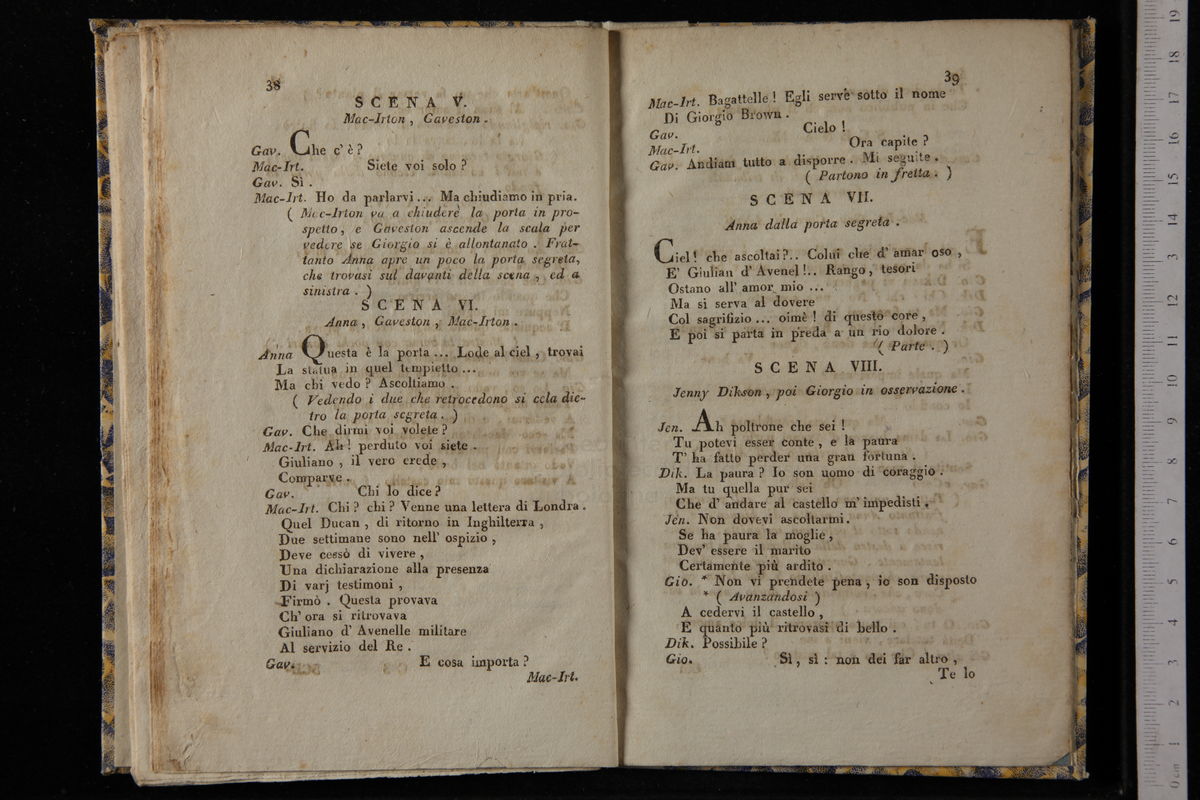 38
SCENA V.
Mac-Irton, Gaveston.
Gav. Che c'è?
Mac-Irt. Siete voi solo?
Gav. Sì.
Mac-Irt. Ho da parlarvi... Ma chiudiamo in pria.
( Mac-Irton va a chiudere la porta in pro-
spetto, e Gaveston ascende la scala per
vedere se Giorgio si è allontanato. Frat-
tanto Anna apre un poco la porta segreta,
che trovasi sul davanti della scena, ed a
sinistra. )
SCENA VI.
Anna, Gaveston, Mac-Irton.
Anna Questa è la porta... Lode al ciel, trovai
La statua in quel tempietto...
Ma chi vedo? Ascoltiamo.
( Vedendo i due che retrocedono si cela die-
tro la porta segreta. )
Gav. Che dirmi voi volete?
Mac-Irt. Ah! perduto voi siete.
Giuliano, il vero erede,
Comparve.
Gav. Chi lo dice?
Mac-Irt. Chi? chi? Venne una lettera di Londra.
Quel Ducan, di ritorno in Inghilterra,
Due settimane sono nell' ospizio,
Deve cessò di vivere,
Una dichiarazione alla presenza
Di varj testimoni,
Firmò. Questa provava
Ch' ora si ritrovava
Giuliano d' Avenelle militare
Al servizio del Re.
Gav. E cosa importa?
Mac-Irt.
39
Mac-Irt. Bagattelle! Egli serve sotto il nome
Di Giorgio Brown.
Gav. Cielo!
Mac-Irt. Ora capite?
Gav. Andiam tutto a disporre. Mi seguite.
( Partono in fretta. )
SCENA VII.
Anna dalla porta segreta.
Ciel! che ascoltai?.. Colui che d' amar oso,
E' Giulian d' Avenel!.. Rango, tesori
Ostano all' amor mio...
Ma si serva al dovere
Col sagrifizio... oimè! di questo core,
E poi si parta in preda a un rio dolore.
( Parte. )
SCENA VIII.
Jenny Dikson, poi Giorgio in osservazione.
Jen. Ah poltrone che sei!
Tu potevi esser conte, e la paura
T' ha fatto perder una gran fortuna.
Dik. La paura? Io son uomo di coraggio.
Ma tu quella pur sei
Che d' andare al castello m' impedisti.
Jen. Non dovevi ascoltarmi.
Se ha paura la moglie,
Dev' essere il marito
Certamente più ardito.
Gio. * Non vi prendete pena, io son disposto
* ( Avanzandosi )
A cedervi il castello,
E quanto più ritrovasi di bello.
Dik. Possibile?
Gio. Sì, sì: non dei far altro,
Te lo